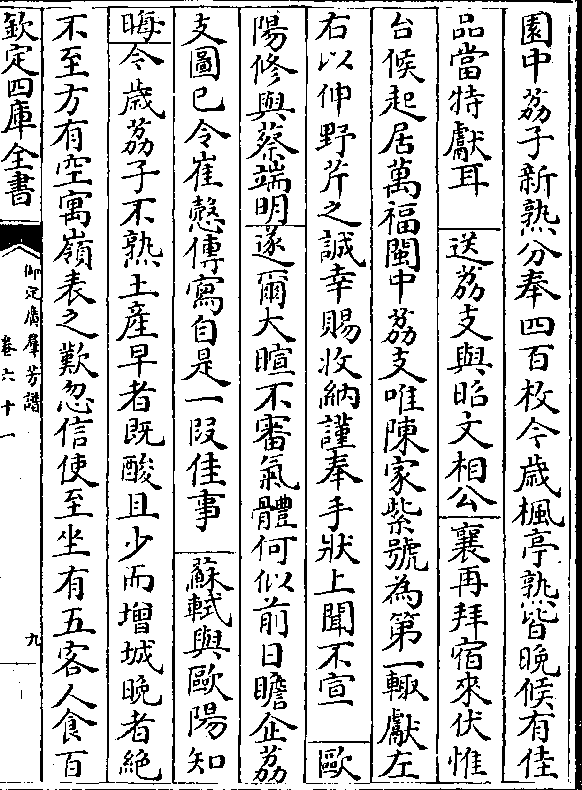 園中荔子新熟分奉四百枚今歲楓亭熟皆晚候有佳
品當特獻耳 送荔支與昭文相公 襄再拜宿來伏惟
台候起居萬福閩中荔支唯陳家紫號為第一輙獻左
右以伸野芹之誠幸賜收納謹奉手狀上聞不宣 歐
陽修與蔡端明 遂爾大暄不審氣體何似前日瞻企荔
支圖已令崔慤傳寫自是一段佳事 蘇軾與歐陽知
晦 今歲荔子不熟土產早者既酸且少而增城晚者絶
不至方有空寓嶺表之歎忽信使至坐有五客人食百
欽定四庫全書
御定廣羣芳譜
卷六十一
九